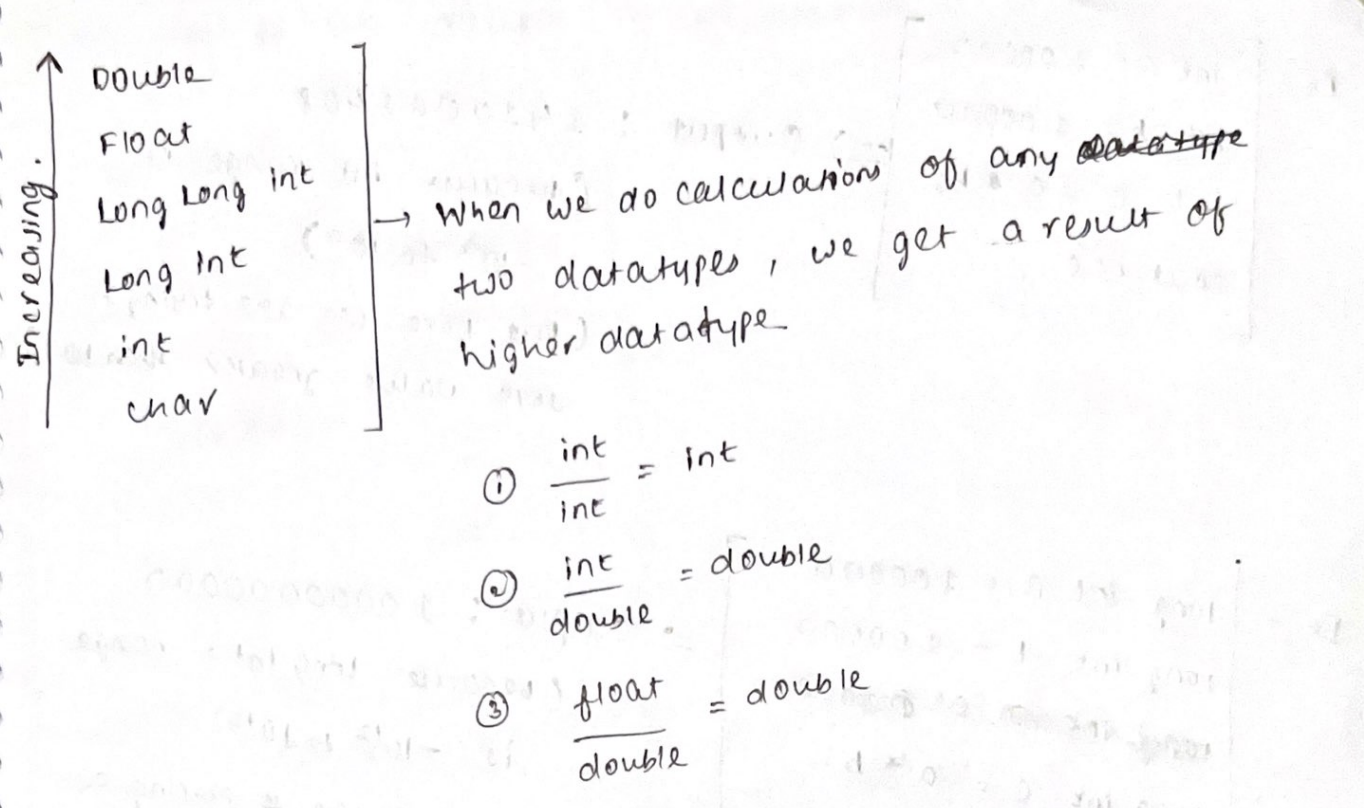 Increasing.
Double
Float
Long Long int
Long int
int
char
→ When we do calculations of any datatype
two datatypes, we get a result of
higher datatype
① int / int = int
② int / double = double
③ float / double = double